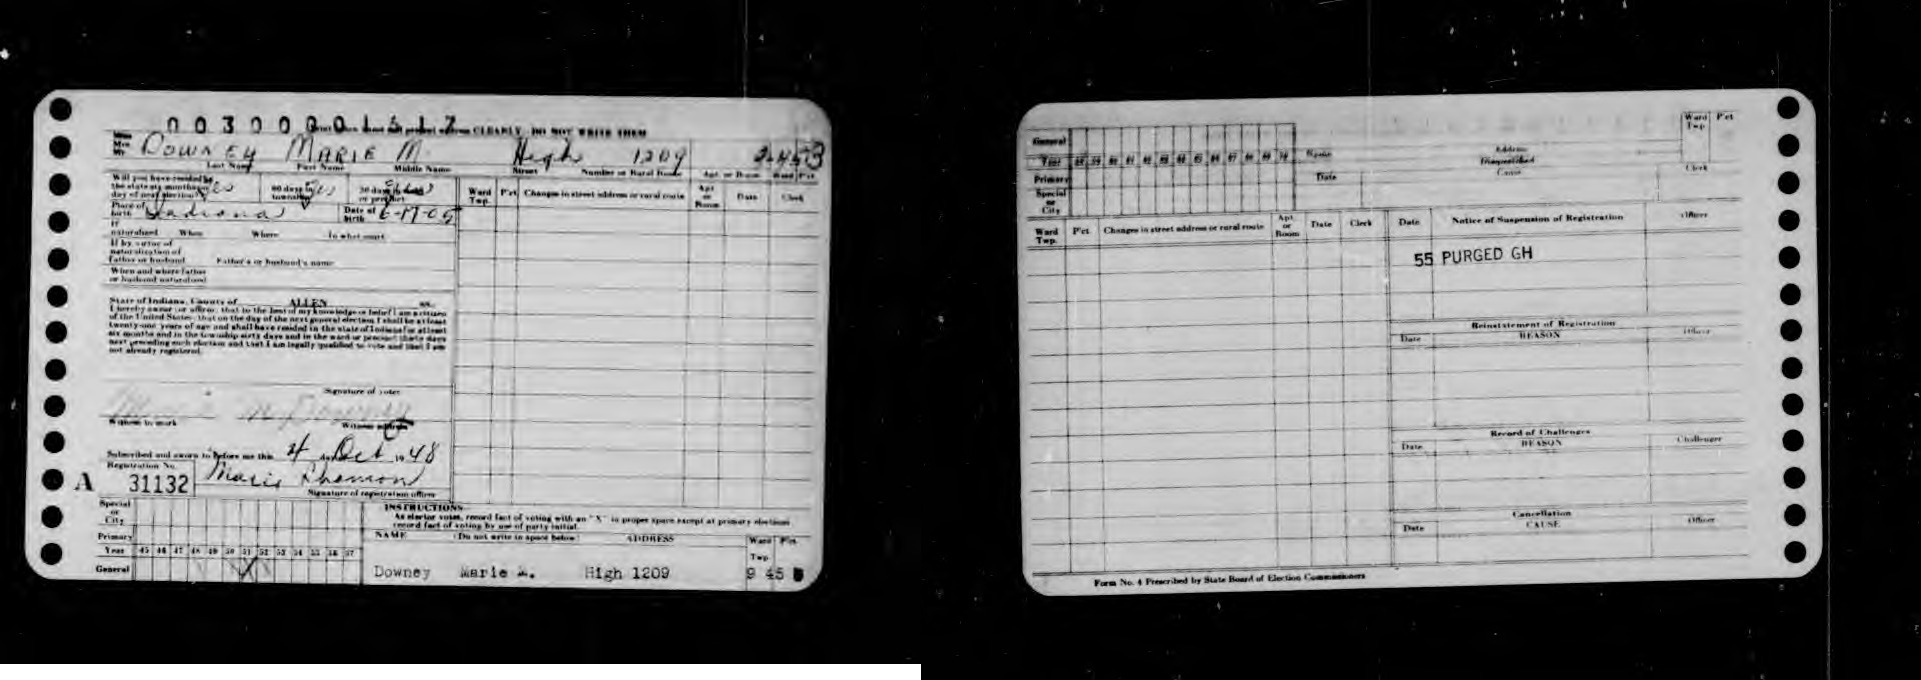 003000001517
CLEARLY DO NOT WRITE THEM
Miss
Mrs.
Mr. DOWNEY MARIE M. High 1209
Last Name First Name Middle Name Street Number or Rural Route Apt. or Room Ward P'ct
Will you have resided in
the state six months
day of next election yes
60 days in
township yes
30 days in ward
or precinct
Ward
Twp.
P'ct
Changes in street address or rural route
Apt.
or
Room
Date
Clerk
Place of
birth Indiana
Date of
birth 6-17-05
If
naturalized When Where In what court
If by virtue of
naturalization of
father or husband Father's or husband's name
When and where father
or husband naturalized
State of Indiana, County of ALLEN ss.
I hereby swear (or affirm) that to the best of my knowledge or belief I am a citizen
of the United States; that on the day of the next general election I shall be at least
twenty-one years of age and shall have resided in the state of Indiana for at least
six months and in the township sixty days and in the ward or precinct thirty days
next preceding such election and that I am legally qualified to vote and that I am
not already registered.
Signature of voter
M. Downey
Witness to mark Witness address
Subscribed and sworn to before me this 4 day Oct 1948
Registration No.
A 31132
Signature of registration officer
Special
or
City
Primary
Year 45 46 47 48 49 50 51 52 53 54 55 56 57
General
INSTRUCTIONS
As elector votes, record fact of voting with an "X" in proper space except at primary elections
record fact of voting by use of party initial.
NAME (Do not write in space below) ADDRESS Ward P'ct
Twp.
Downey Marie M. High 1209 9 45
General
Year 58 59 60 61 62 63 64 65 66 67 68 69 70
Primary
Special
or
City
Name Address
Disqualified
Date Cause
Ward
Twp.
P'ct
Clerk
Ward
Twp.
P'ct
Changes in street address or rural route
Apt.
or
Room
Date
Clerk
Date Notice of Suspension of Registration Officer
55 PURGED GH
Reinstatement of Registration
Date REASON Officer
Record of Challenges
Date REASON Challenger
Cancellation
Date CAUSE Officer
Form No. 4 Prescribed by State Board of Election Commissioners